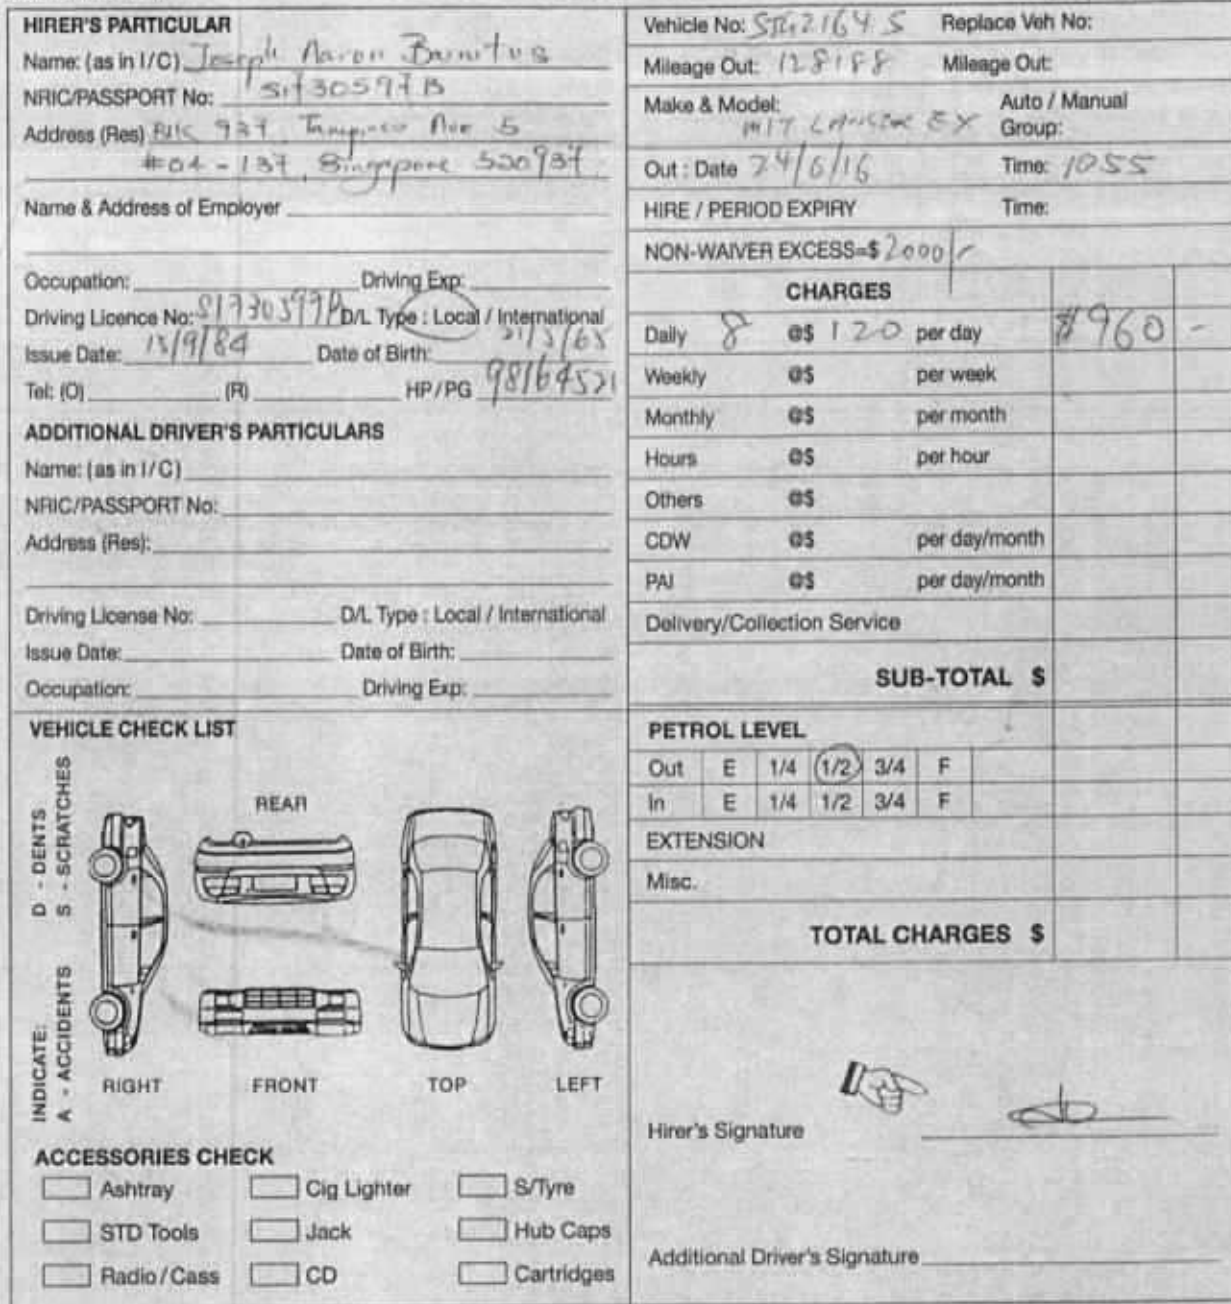 HIRER'S PARTICULAR
Name: (as in I/C) Joseph Aaron
NRIC/PASSPORT No: S1730597B
Address (Res) Blk 937 Tampines Ave 5
#04-137, Singapore 520937
Name & Address of Employer
Occupation: Driving Exp:
Driving Licence No: S1730597B D/L Type : Local / International
Issue Date: 15/9/84 Date of Birth: 21/3/65
Tel: (O) (R) HP/PG 98164521
ADDITIONAL DRIVER'S PARTICULARS
Name: (as in I/C)
NRIC/PASSPORT No:
Address (Res):
Driving License No: D/L Type : Local / International
Issue Date: Date of Birth:
Occupation: Driving Exp:
VEHICLE CHECK LIST
INDICATE: D - DENTS
A - ACCIDENTS S - SCRATCHES
REAR
RIGHT FRONT TOP LEFT
ACCESSORIES CHECK
Ashtray Cig Lighter S/Tyre
STD Tools Jack Hub Caps
Radio/Cass CD Cartridges
Vehicle No: Replace Veh No:
Mileage Out: 128188 Mileage Out:
Make & Model: Auto / Manual
MIT LANCER EX Group:
Out : Date 24/6/16 Time: 1055
HIRE / PERIOD EXPIRY Time:
NON-WAIVER EXCESS=$ 2000/-
CHARGES
Daily 8 @$ 120 per day $960 -
Weekly @$ per week
Monthly @$ per month
Hours @$ per hour
Others @$
CDW @$ per day/month
PAI @$ per day/month
Delivery/Collection Service
SUB-TOTAL $
PETROL LEVEL
Out E 1/4 1/2 3/4 F
In E 1/4 1/2 3/4 F
EXTENSION
Misc.
TOTAL CHARGES $
Hirer's Signature
Additional Driver's Signature